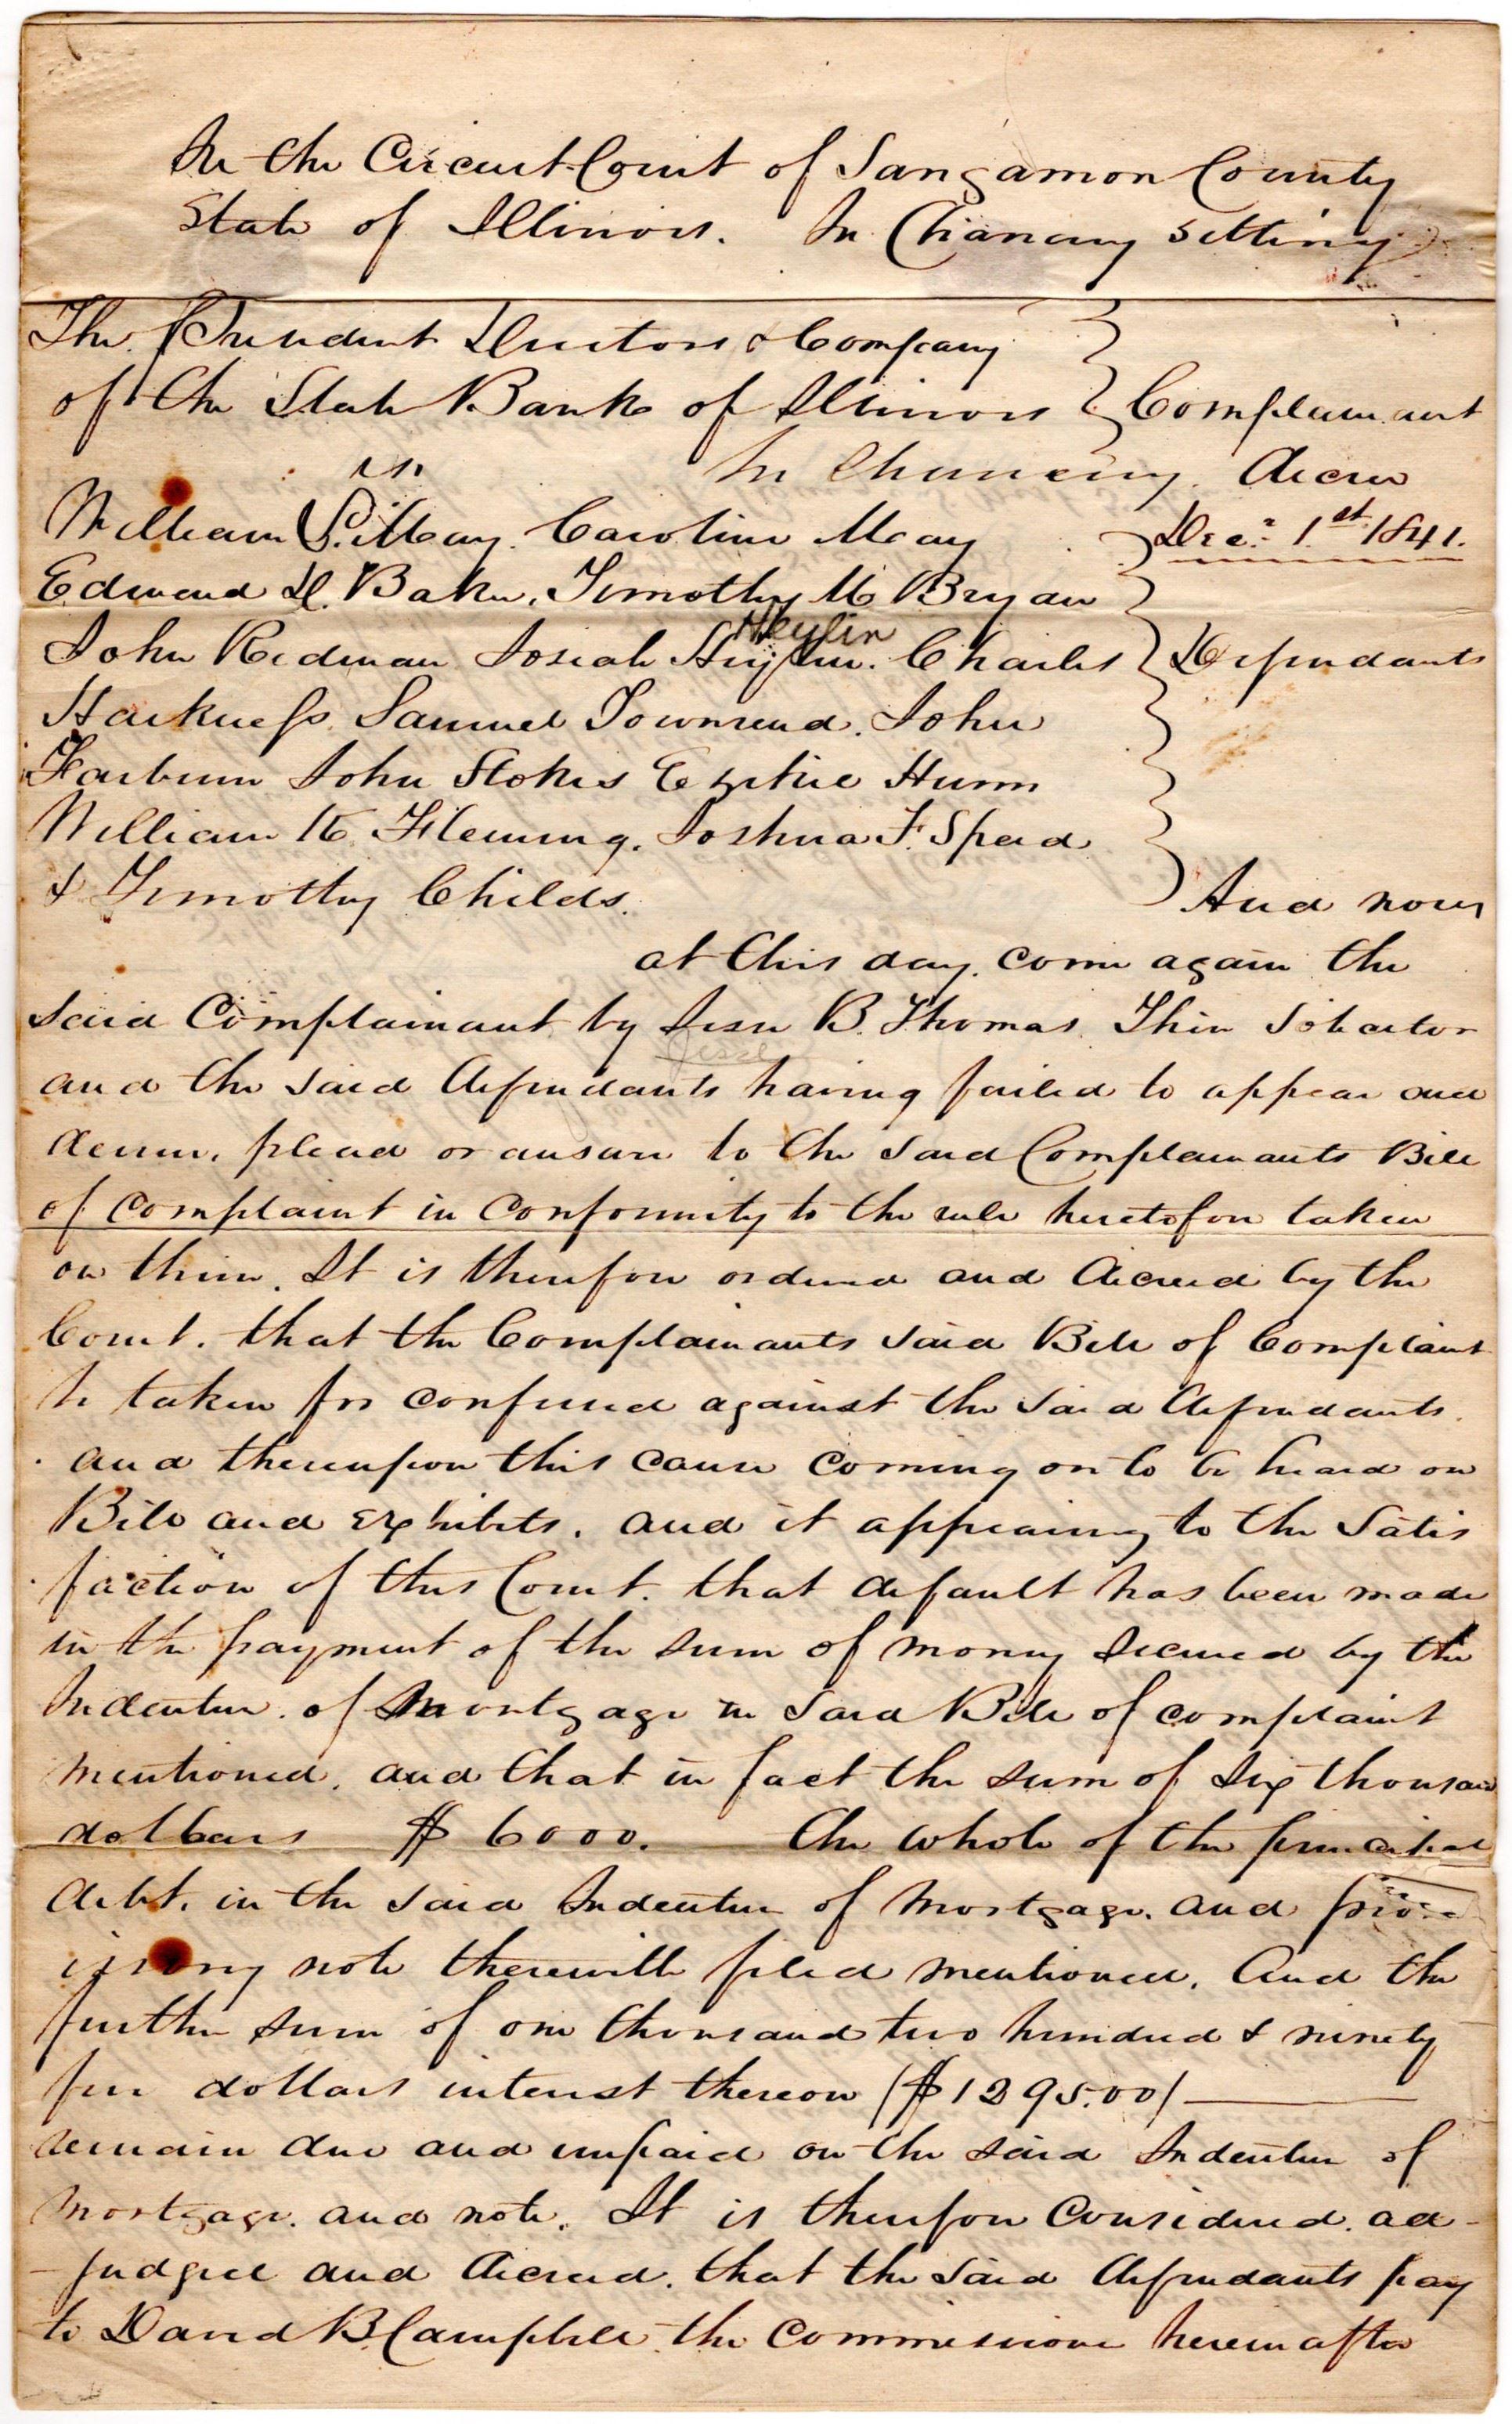 In the Circuit Court of Sangamon County
State of Illinois. In Chancery sitting
The President Directors & Company
of the State Bank of Illinois } Complainant
vs. In Chancery. Decree
William L. May. Caroline May Dec.r 1st 1841.
Edward D. Baker. Timothy M Bryan
Heylin
John Redman Josiah Heylin. Charles } Defendants
Harkness. Samuel Townsend. John
Fairburn John Stokes Ezekiel Hunn
William K Fleming. Joshua F. Speed
& Timothy Childs. And now
at this day. come again the
said Complainant by Jesse B. Thomas. Their Solicitor
Jesse
and the said defendants having failed to appear and
demur. plead or answer to the said Complainants Bill
of complaint in conformity to the rule heretofore taken
on them. It is therefore ordered and decreed by the
Court. that the Complainants said Bill of Complaint
be taken for confessed against the said defendants.
and thereupon this cause coming on to be heard on
Bill and exhibits. and it appearing to the Satis
faction of this Court. that default has been made
in the payment of the sum of money secured by the
Indenture. of Mortgage in said Bill of complaint
mentioned. and that in fact the sum of six thousand
dollars $ 6000. the whole of the principal
debt. in the said Indenture of Mortgage. and prom
issory note therewith filed mentioned. And the
further sum of one thousand two hundred & ninety
five dollars interest thereon ($1295.00)
remain due and unpaid on the said Indenture of
Mortgage. and note. It is therefore Considered. ad-
-judged and decreed. that the said defendants pay
to David B Campbell the commissioner herein after